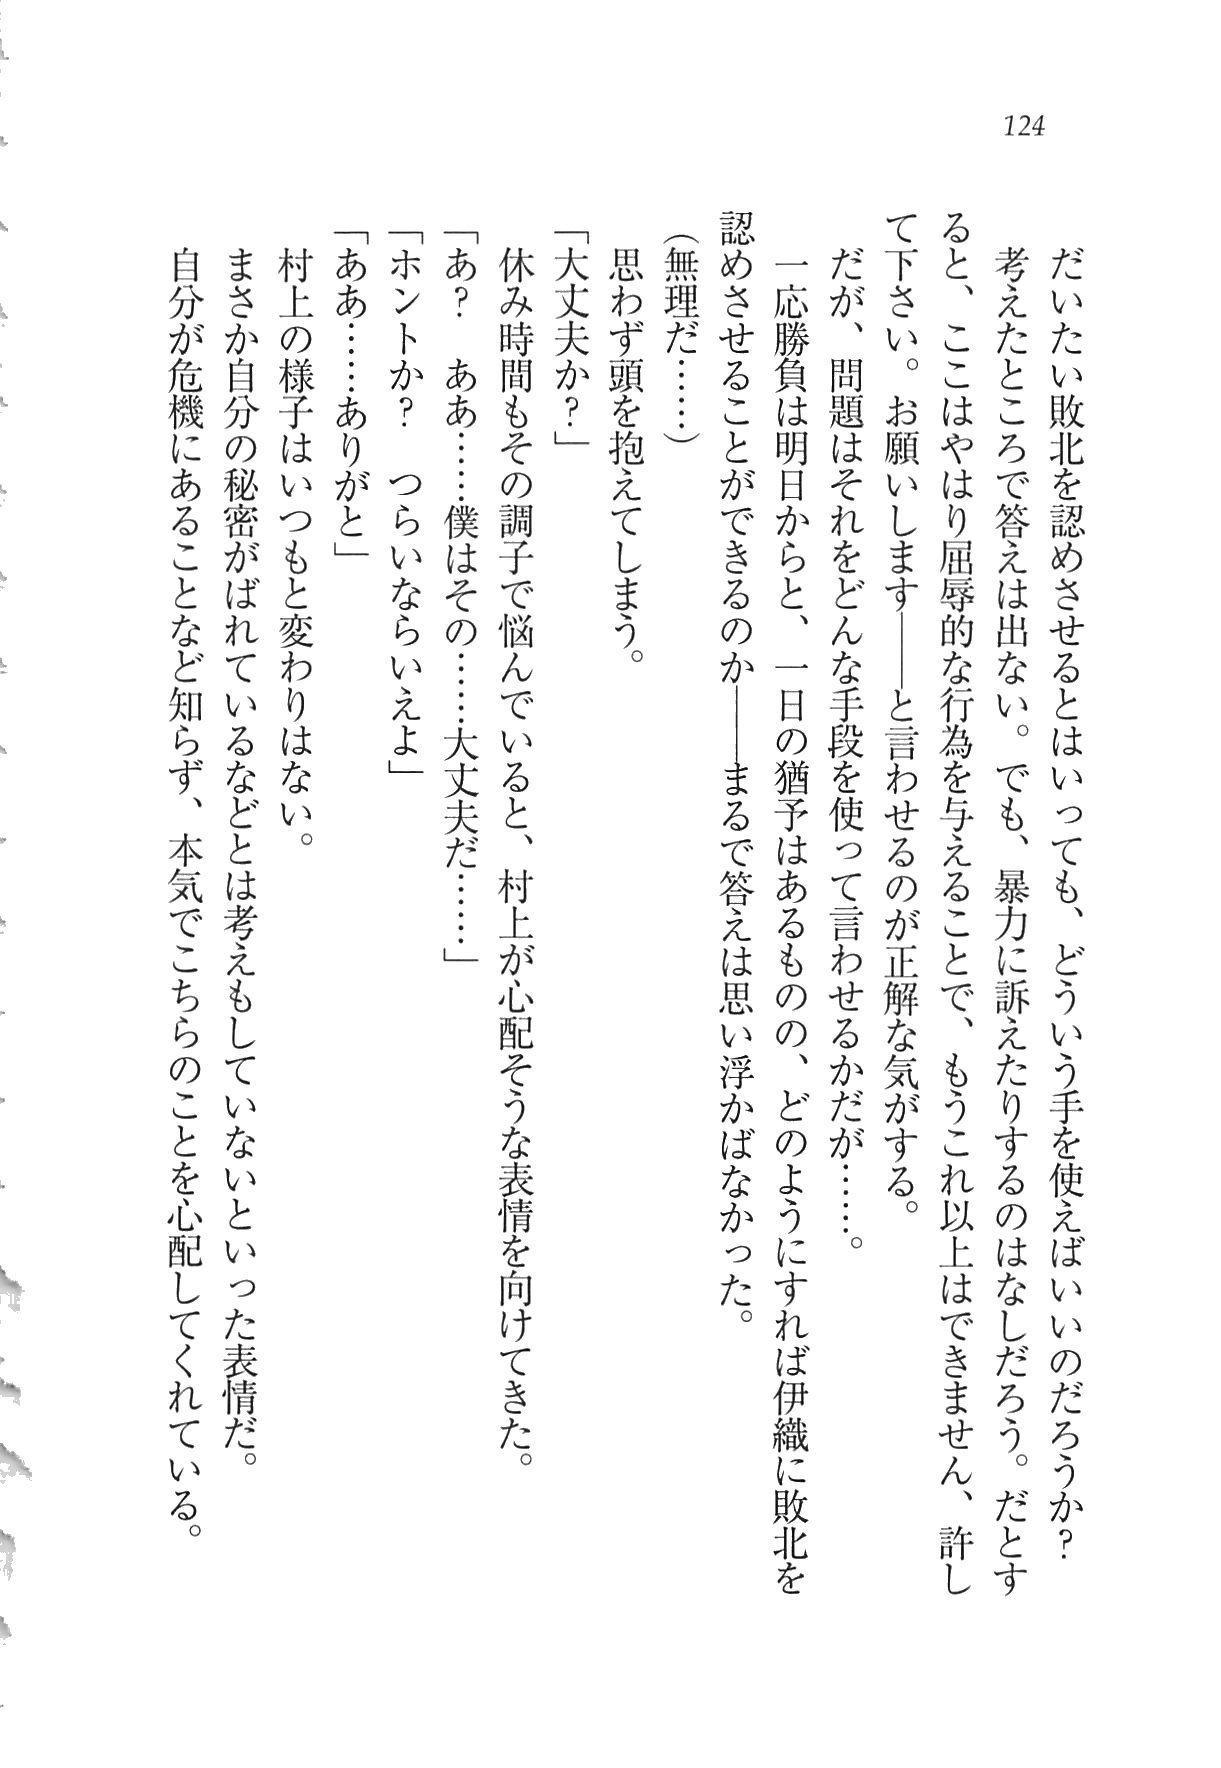 124
だいたい敗北を認めさせるとはいっても、どういう手を使えばいいのだろうか?
考えたところで答えは出ない。でも、暴力に訴えたりするのはなしだろう。だとす
ると、ここはやはり屈辱的な行為を与えることで、もうこれ以上はできません、許し
て下さい。お願いします――と言わせるのが正解な気がする。
だが、問題はそれをどんな手段を使って言わせるかだが……。
一応勝負は明日からと、一日の猶予はあるものの、どのようにすれば伊織に敗北を
認めさせることができるのか――まるで答えは思い浮かばなかった。
(無理だ……)
思わず頭を抱えてしまう。
「大丈夫か?」
休み時間もその調子で悩んでいると、村上が心配そうな表情を向けてきた。
「あ? ああ……僕はその……大丈夫だ……」
「ホントか? つらいならいえよ」
「ああ……ありがと」
村上の様子はいつもと変わりはない。
まさか自分の秘密がばれているなどとは考えもしていないといった表情だ。
自分が危機にあることなど知らず、本気でこちらのことを心配してくれている。